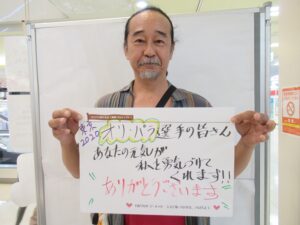 東京
2020
オリ・パラ選手の皆さん
あなたの元気が
私を勇気づけて
くれます!!
ありがとうございます